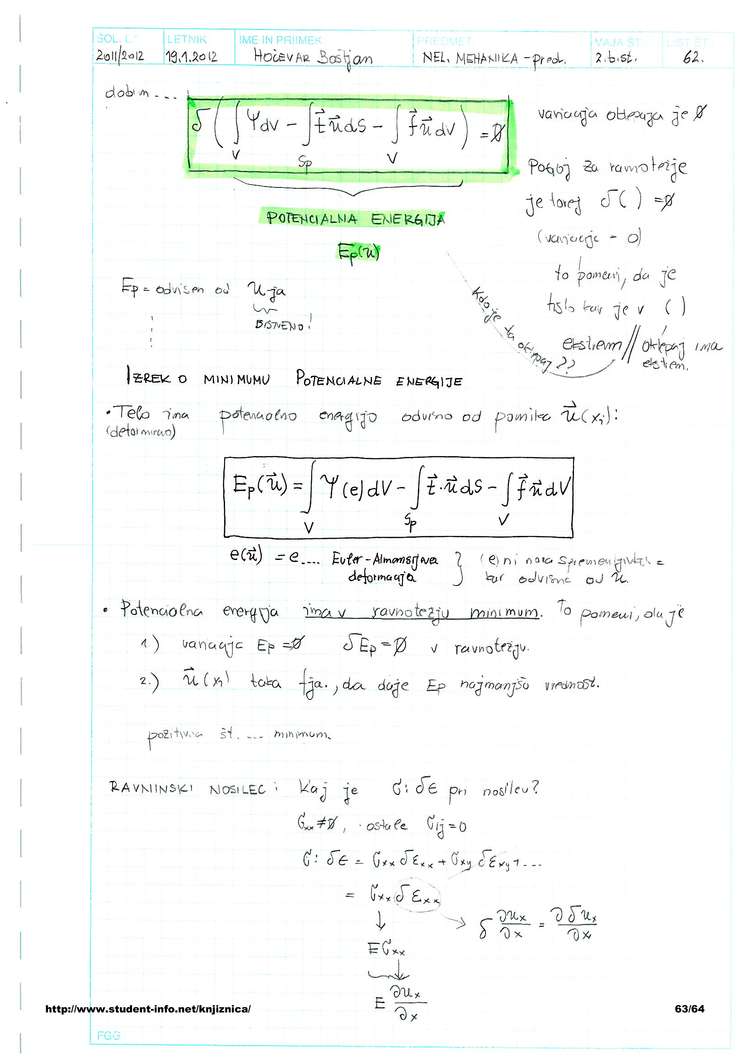 ŠOL. L. LETNIK IME IN PRIIMEK PREDMET VAJA ŠT. LIST ŠT.
2011/2012 19.1.2012 HOČEVAR Boštjan NEL. MEHANIKA - pred. 2.b.st. 62.
dobim ....
δ ( ∫_V Ψ dV - ∫_Sp t⃗ u⃗ dS - ∫_V f⃗ u⃗ dV ) = Ø
variacija oklepaja je Ø
POTENCIALNA ENERGIJA
Ep(u)
Pogoj za ravnotežje
je torej δ( ) = Ø
(variacija - 0)
to pomeni, da je
tisto kar je v ( )
ekstrem // oklepaj ima
ekstrem.
Kdo je ta oklepaj ??
Ep = odvisen od u-ja
BISTVENO!
IZREK O MINIMUMU POTENCIALNE ENERGIJE
• Telo ima potencialno energijo odvisno od pomika u⃗(xi):
(deformirano)
Ep(u⃗) = ∫_V Ψ(e) dV - ∫_Sp t⃗ · u⃗ dS - ∫_V f⃗ u⃗ dV
e(u⃗) = e .... Euler-Almansijeva
deformacija
(e) ni nova spremenljivka
ker odvisna od u
• Potencialna energija ima v ravnotežju minimum. To pomeni, da je
1.) variacija Ep = Ø δEp = Ø v ravnotežju.
2.) u⃗(xi) taka fja., da daje Ep najmanjšo vrednost.
pozitivna št. .... minimum.
RAVNINSKI NOSILEC: Kaj je σ : δϵ pri nosilcu?
σxx ≠ Ø, ostale σij = 0
σ : δϵ = σxx δεxx + σxy δεxy + ...
= σxx δεxx
↓ → δ ∂ux/∂x = ∂δux/∂x
Eεxx
↓
E ∂ux/∂x
http://www.student-info.net/knjiznica/ 63/64
FGG